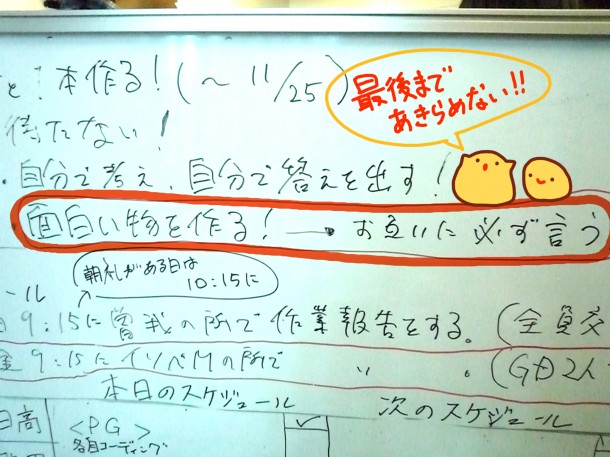 と！本作る！(～11/25)
最後まで
あきらめない!!
待たない！
・自分で考え、自分で答えを出す！
面白い物を作る！→お互いに必ず言う
朝礼がある日は
10:15に
ール
9:15に曽我の所で作業報告をする。(全員交
金 9:15にイソベMの所で 〃 。(GD2人
本日のスケジュール
次のスケジュール
日高
<PG>
各自コーディング